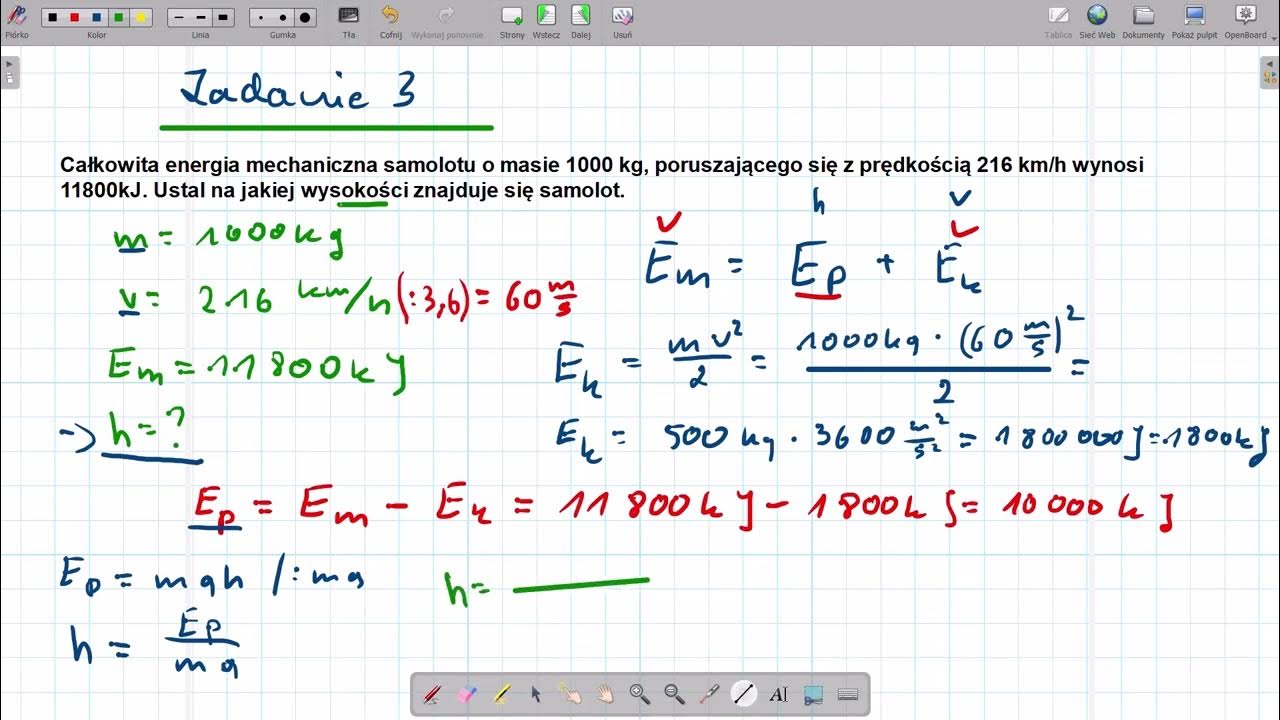 Piórko Kolor Linia Gumka Tła Cofnij Wykonaj ponownie Strony Wstecz Dalej Usuń Tablica Sieć Web Dokumenty Pokaż pulpit OpenBoard
Zadanie 3
Całkowita energia mechaniczna samolotu o masie 1000 kg, poruszającego się z prędkością 216 km/h wynosi
11800kJ. Ustal na jakiej wysokości znajduje się samolot.
h v
m = 1000kg
v v
Em = Ep + Ek
v = 216 km/h (:3,6) = 60 m/s
Ek = mv²/2 = 1000kg · (60 m/s)²/2 =
Em = 11800kJ
-> h = ?
Ek = 500kg · 3600 m²/s² = 1800000J = 1800kJ
Ep = Em - Ek = 11800kJ - 1800kJ = 10000kJ
Ep = mgh /: mg
h =
h = Ep/mg
AI